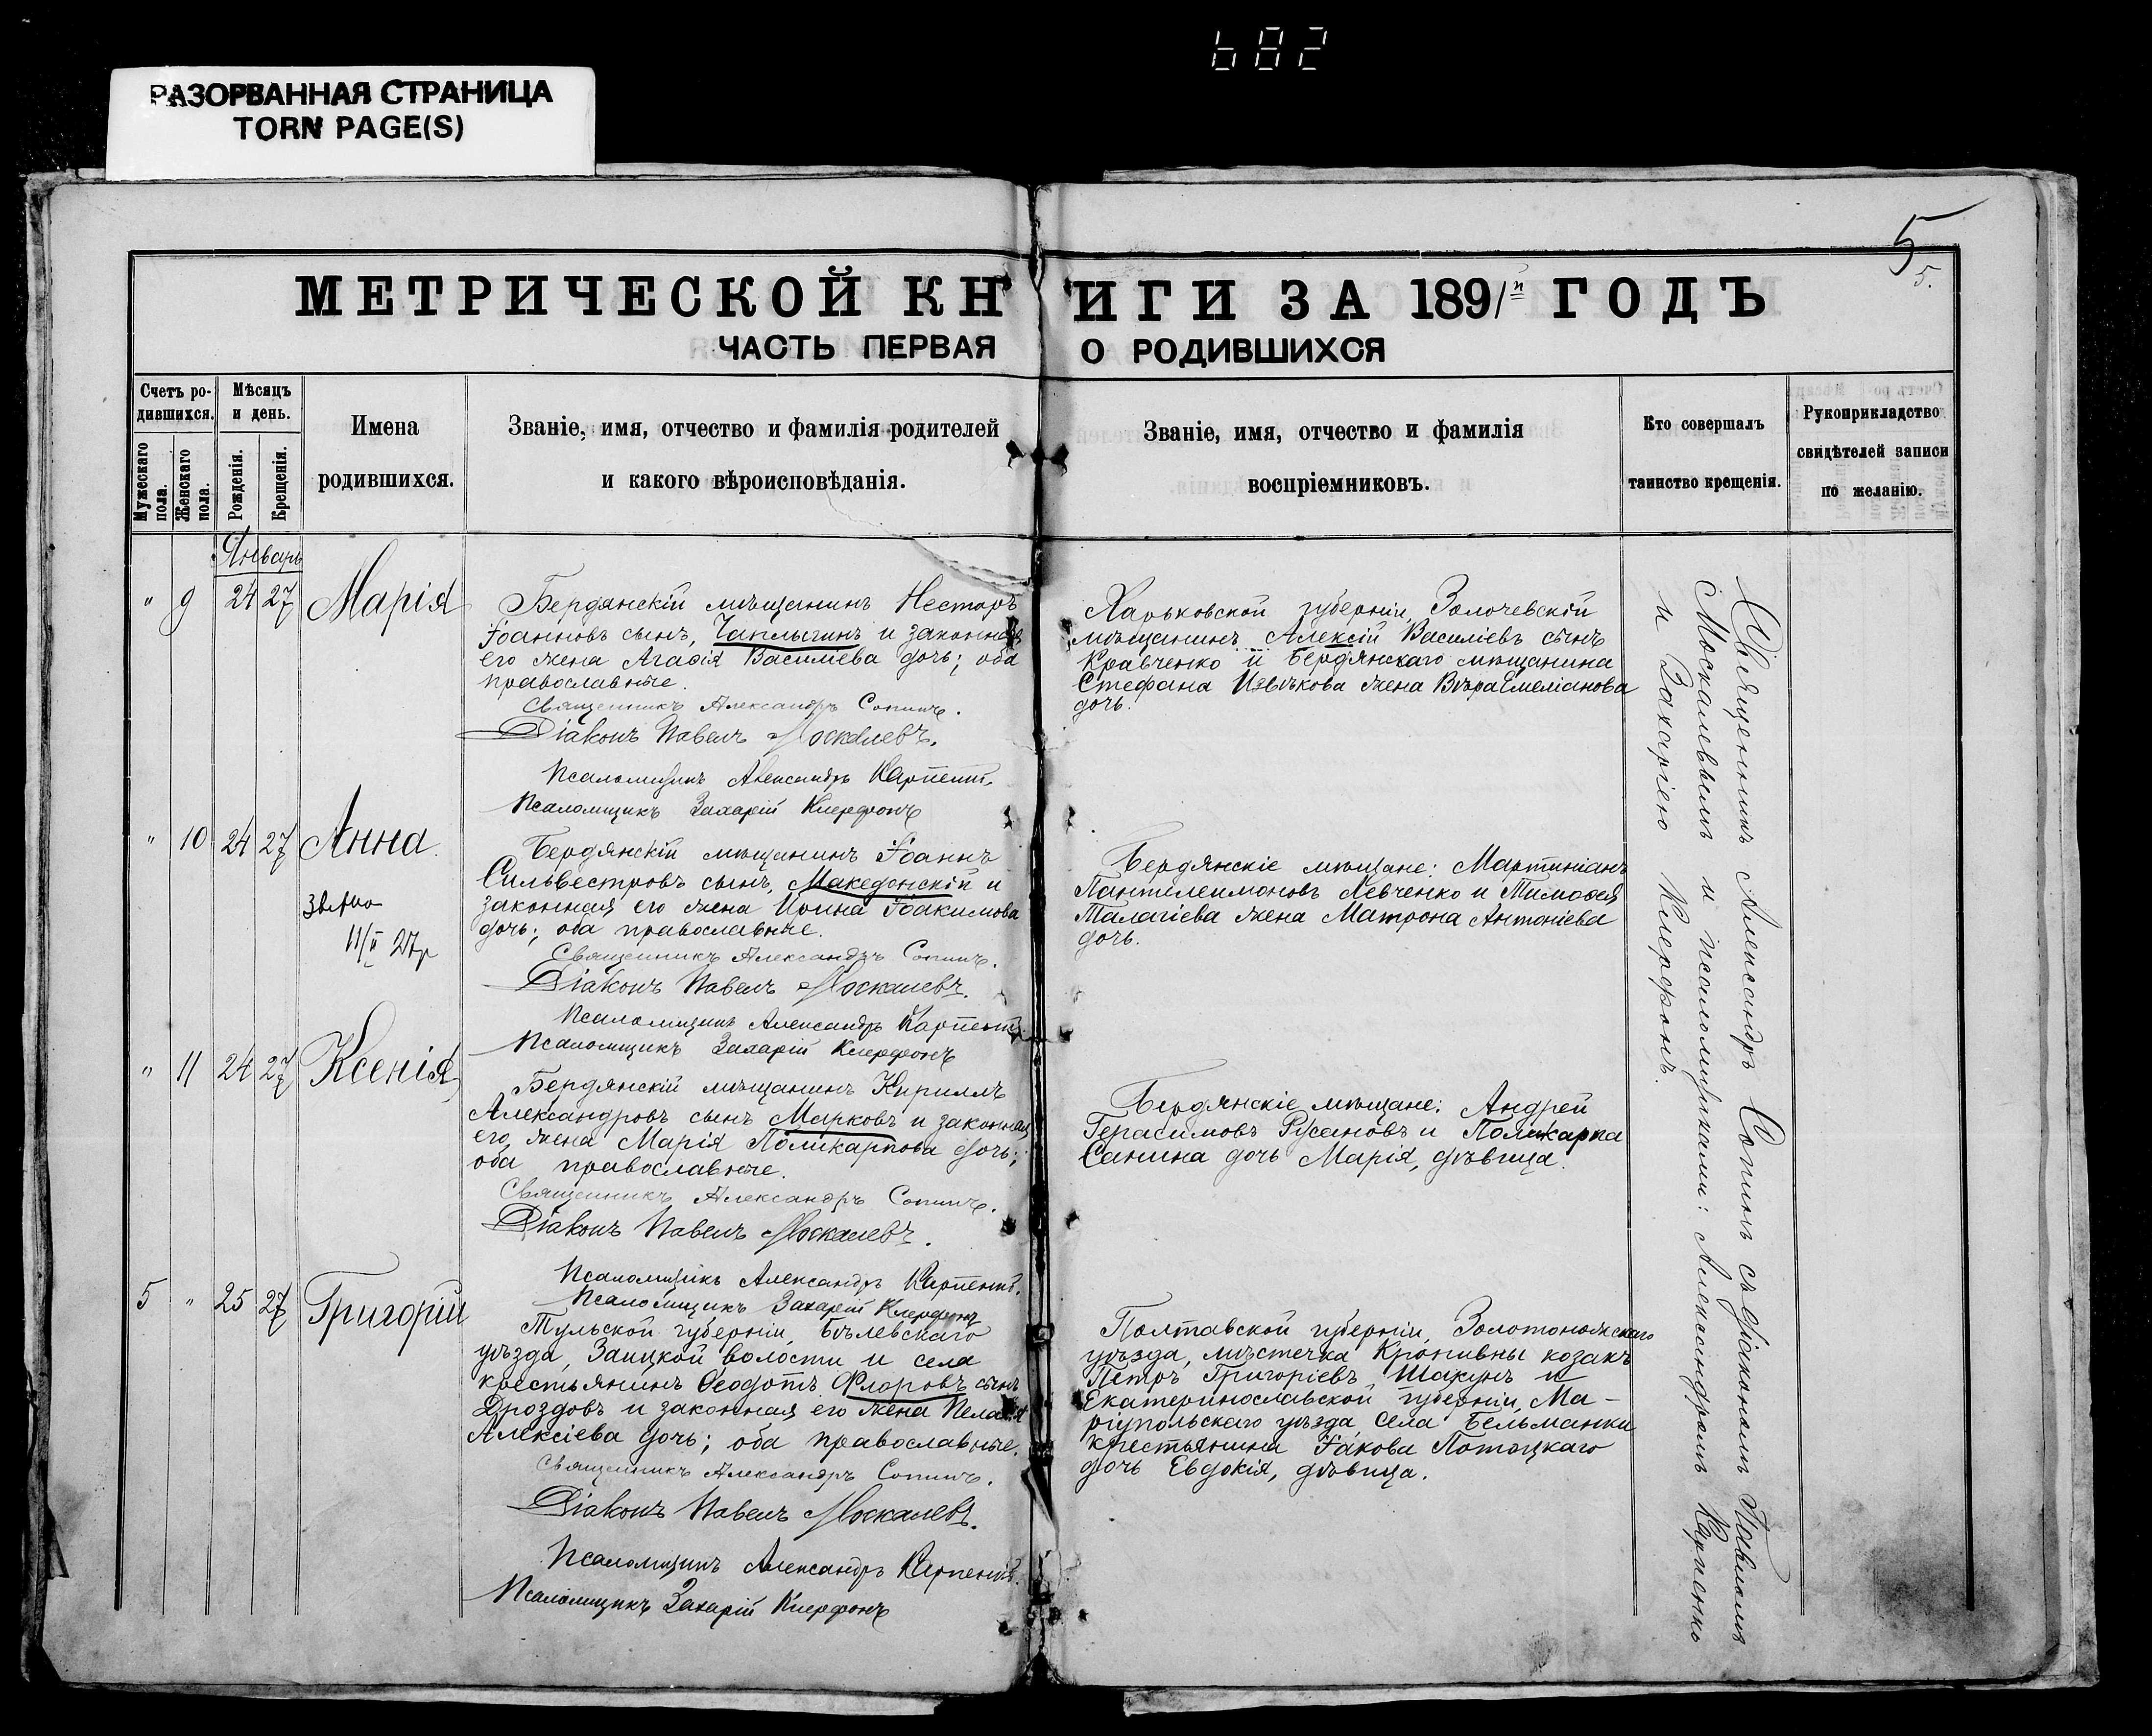 682
РАЗОРВАННАЯ СТРАНИЦА
TORN PAGE(S)
5
5.
МЕТРИЧЕСКОЙ КНИГИ ЗА 1891й ГОДЪ
ЧАСТЬ ПЕРВАЯ О РОДИВШИХСЯ
Счетъ ро-
дившихся.
Мужескаго пола.
Женскаго пола.
Мѣсяцъ
и день.
Рожденія.
Крещенія.
Имена
родившихся.
Званіе, имя, отчество и фамилія родителей
и какого вѣроисповѣданія.
Званіе, имя, отчество и фамилія
воспріемниковъ.
Кто совершалъ
таинство крещенія.
Рукоприкладство
свидѣтелей записи
по желанію.
Январь
" 9 24 27 Марія
Бердянскій мѣщанинъ Несторъ
Іоанновъ сынъ, Чаплыгинъ и законная
его жена Агафія Василіева дочь; оба
православные.
Священникъ Александръ Сопинъ.
Діаконъ Павелъ Москалевъ.
Псаломщикъ Александръ Карпенко.
Псаломщикъ Захарій Клерфонъ
Харьковской губерніи, Золочевскій
мѣщанинъ Алексій Василіевъ сынъ
Кравченко и Бердянскаго мѣщанина
Стефана Извѣкова жена Вѣра Емеліанова
дочь.
" 10 24 27 Анна.
11/II 27р
Бердянскій мѣщанинъ Іоаннъ
Сильвестровъ сынъ, Македонскій и
законная его жена Ирина Іоакимова
дочь; оба православные.
Священникъ Александръ Сопинъ.
Діаконъ Павелъ Москалевъ.
Псаломщикъ Александръ Карпенко
Псаломщикъ Захарій Клерфонъ
Бердянскіе мѣщане: Мартиніанъ
Пантелеимоновъ Левченко и Тимофея
Талагіева жена Матрона Антоніева
дочь.
" 11 24 27 Ксенія
Бердянскій мѣщанинъ Кириллъ
Александровъ сынъ Марковъ и законная
его жена Марія Поликарпова дочь;
оба православные.
Священникъ Александръ Сопинъ.
Діаконъ Павелъ Москалевъ.
Псаломщикъ Александръ Карпенко.
Псаломщикъ Захарій Клерфонъ
Бердянскіе мѣщане: Андрей
Герасимовъ Русановъ и Поликарпа
Санина дочь Марія, дѣвица.
5 " 25 27 Григорій
Тульской губерніи, Бѣлевскаго
уѣзда, Заицкой волости и села
крестьянинъ Ѳеодотъ Флоровъ сынъ
Дроздовъ и законная его жена Пелагія
Алексіева дочь; оба православные.
Священникъ Александръ Сопинъ.
Діаконъ Павелъ Москалевъ.
Псаломщикъ Александръ Карпенко.
Псаломщикъ Захарій Клерфонъ
Полтавской губерніи, Золотоножскаго
уѣзда, мѣстечка Кропивны козакъ
Петръ Григоріевъ Шакунъ и
Екатеринославской губерніи, Ма-
ріупольскаго уѣзда, села Бельманки
крестьянина Іакова Потоцкаго
дочь Евдокія, дѣвица.
Священникъ Александръ Сопинъ съ діакономъ Павломъ
Москалевымъ и псаломщиками: Александромъ Карпенко
и Захаріею Клерфонъ.